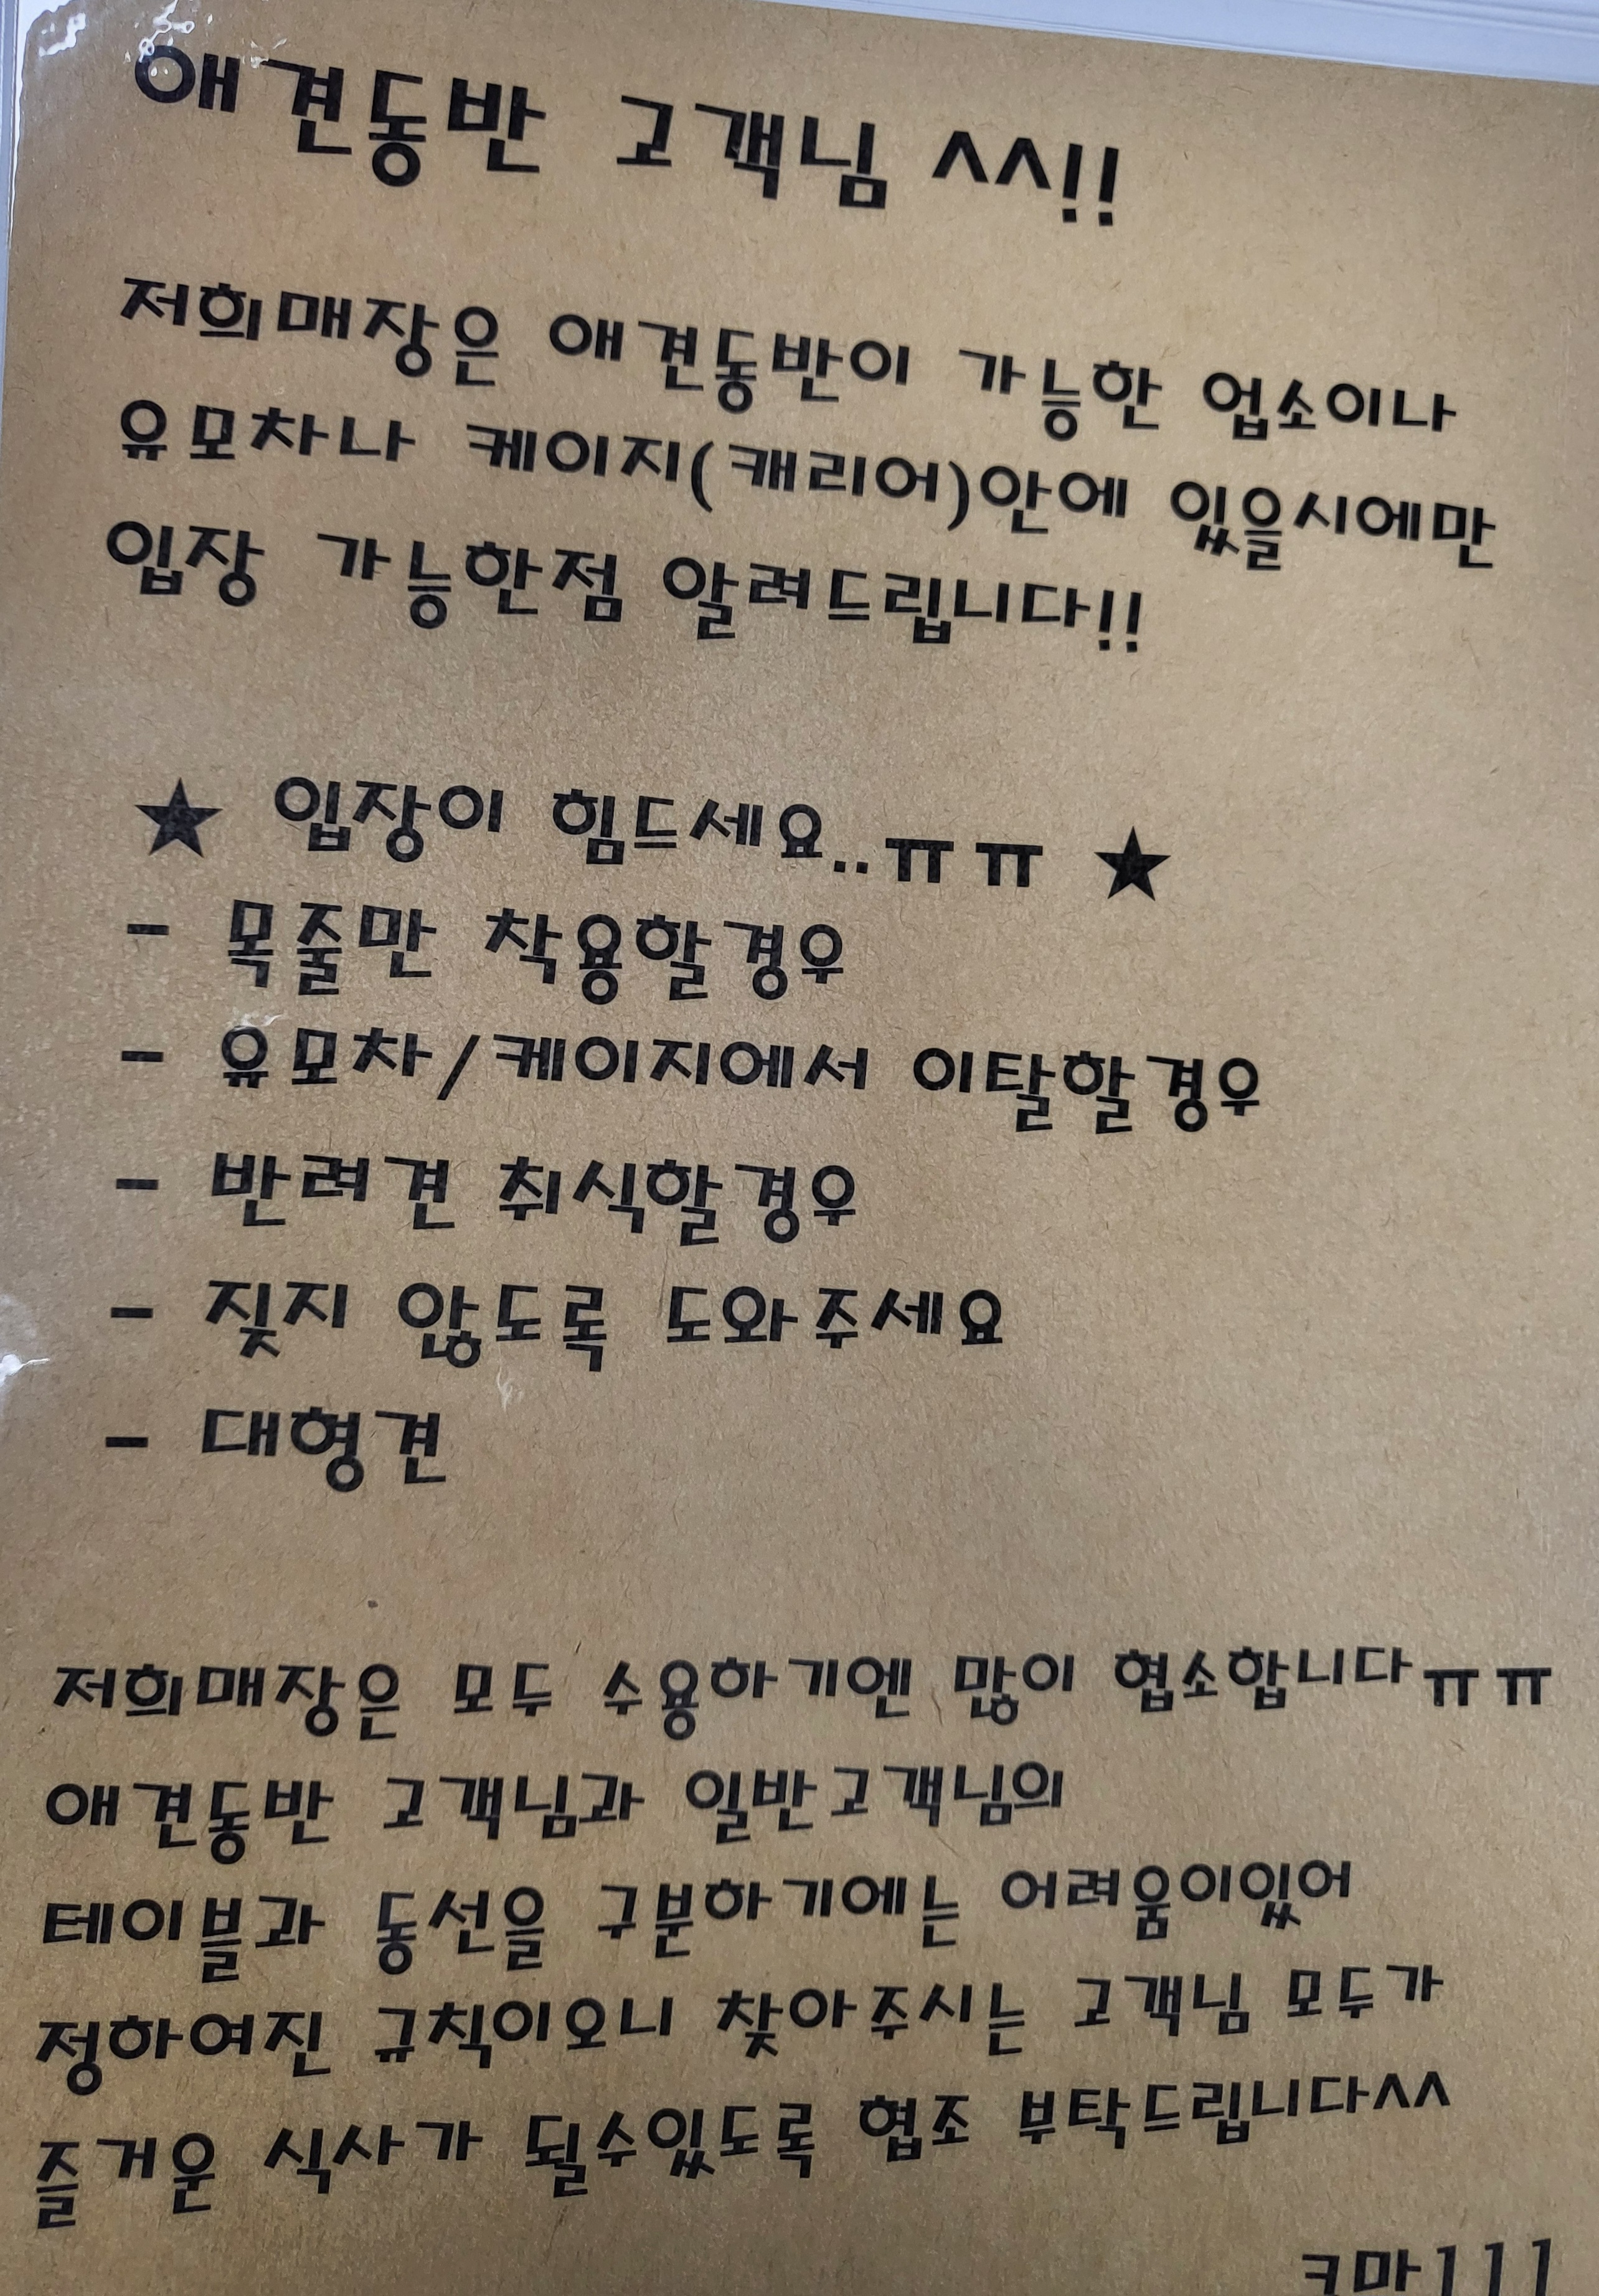 애견동반 고객님 ^^!!
저희매장은 애견동반이 가능한 업소이나
유모차나 케이지(캐리어)안에 있을시에만
입장 가능한점 알려드립니다!!
★ 입장이 힘드세요..ㅠㅠ ★
- 목줄만 착용할경우
- 유모차/케이지에서 이탈할경우
- 반려견 취식할경우
- 짖지 않도록 도와주세요
- 대형견
저희매장은 모두 수용하기엔 많이 협소합니다ㅠㅠ
애견동반 고객님과 일반고객님의
테이블과 동선을 구분하기에는 어려움이있어
정하여진 규칙이오니 찾아주시는 고객님 모두가
즐거운 식사가 될수있도록 협조 부탁드립니다^^